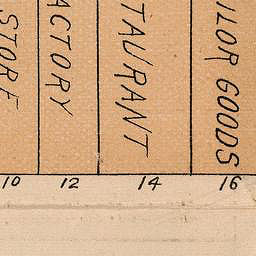 STORE
ACTORY
TAURANT
ILOR GOODS
10 12 14 16